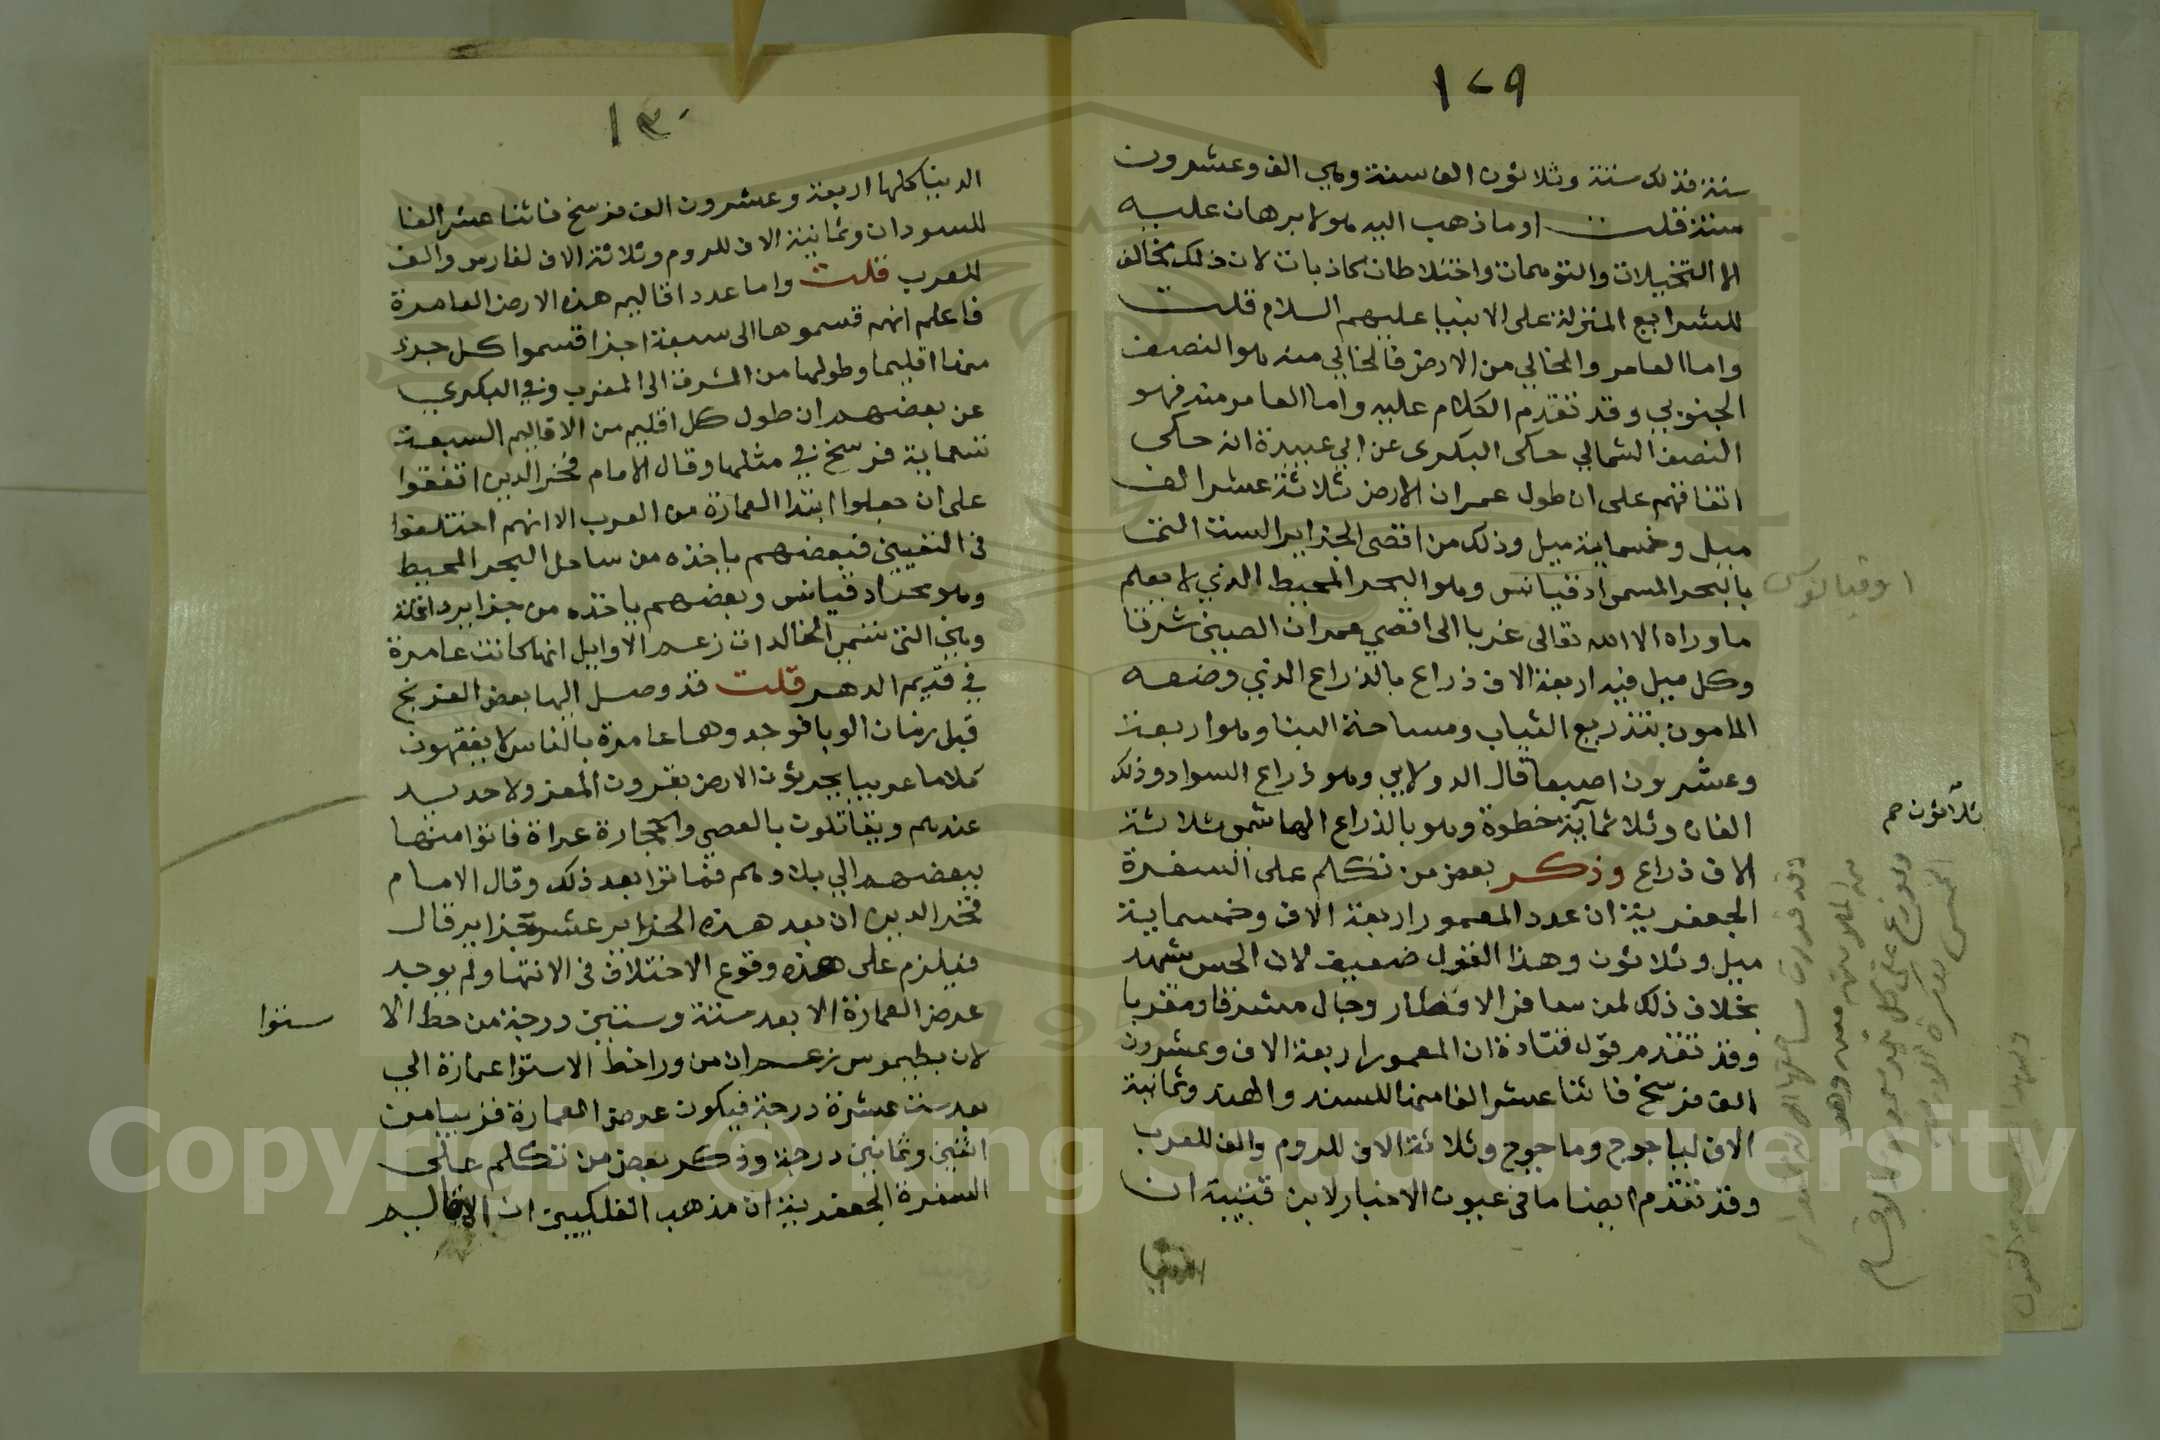 ١٢٩
سنة فذلك ستة وثلاثون الف سنة وهي الف وعشرون
سنة قلت وما ذهب اليه هولا برهان عليه
الا التخيلات والتوهمات واختلاطات كاذبات لان ذلك مخالف
للشرايع المنزلة على الانبيا عليهم السلام قلت
واما العامر والخالي من الارض فالخالي منه هو النصف
الجنوبي وقد تقدم الكلام عليه واما العامر منه فهو
النصف الشمالي حكى البكرى عن ابي عبيدة انه حكى
اتفاقهم على ان طول عمران الارض ثلاثة عشر الف
ميل وخمسماية ميل وذلك من اقصى الجزاير الست التى
بالبحر المسمى ادقيانس وهو البحر المحيط الذي لا يعلم
اوقيانوس
ما وراه الا الله تعالى غربا الى اقصي عمران الصين شرقا
وكل ميل فيه اربعة الاف ذراع بالذراع الذي وضعه
المامون بتذريع الثياب ومساحة البنا وهو اربعة
وعشرون اصبعا قال الدولابي وهو ذراع السواد وذلك
الفان وثلاثماية خطوة وهو بالذراع الهاشمي ثلاثة
ثلاثون صح
الاف ذراع وذكر بعض من تكلم على السفرة
الجعفرية ان عدد المعمور اربعة الاف وخمسماية
ميل وثلاثون وهذا القول ضعيف لان الحس شهد
بخلاف ذلك لمن سافر الاقطار وجال مشرقا ومغربا
وقد تقدم قول قتادة ان المعمور اربعة الاف وعشرون
الف فرسخ فاثنا عشر الفا منها للسند والهند وثمانية
الاف لياجوج وماجوج وثلاثة الاف للروم والف للعرب
وقد تقدم ايضا ما في عيون الاخبار لابن قتيبة ان
الدنيا
١٣٠
الدنيا كلها اربعة وعشرون الف فرسخ فاثنا عشر الفا
للسودان وثمانية الاف للروم وثلاثة الاف لفارس والف
للعرب قلت واما عدد اقاليم هذه الارض العامرة
فاعلم انهم قسموها الى سبعة اجزا قسموا كل جزء
منها اقليما وطولها من المشرق الى المغرب وفي البكري
عن بعضهم ان طول كل اقليم من الاقاليم السبعة
تسعماية فرسخ في مثلها وقال الامام فخر الدين اتفقوا
على ان جعلوا ابتدا العمارة من الغرب الا انهم اختلفوا
في التعيين فبعضهم ياخذه من ساحل البحر المحيط
وهو بحر ادقيانس وبعضهم ياخذه من جزاير داخلة
وهي التى تسمى الخالدات زعم الاوايل انها كانت عامرة
في قديم الدهر قلت قد وصل اليها بعض الفرنج
قبل زمان الوبا فوجدوها عامرة بالناس لا يفقهون
كلاما عربيا يحرثون الارض بقرون المعز ولا حديد
عندهم ويتقاتلون بالعصي والحجارة عراة فاتوا منها
ببعضهم الي بلادهم فماتوا بعد ذلك وقال الامام
فخر الدين ان بعد هذه الجزاير عشرة جزاير قال
فيلزم على هذه وقوع الاختلاف في الانتها ولم يوجد
عرض العمارة الا بعد ستة وستين درجة من خط الا
ستوا
لان بطليموس زعم ان من ورا خط الاستوا عمارة الي
بعد ست عشرة درجة فيكون عرض العمارة قريبا من
اثنين وثمانين درجة وذكر بعض من تكلم على
السفرة الجعفرية ان مذهب الفلكيين ان الاقاليم